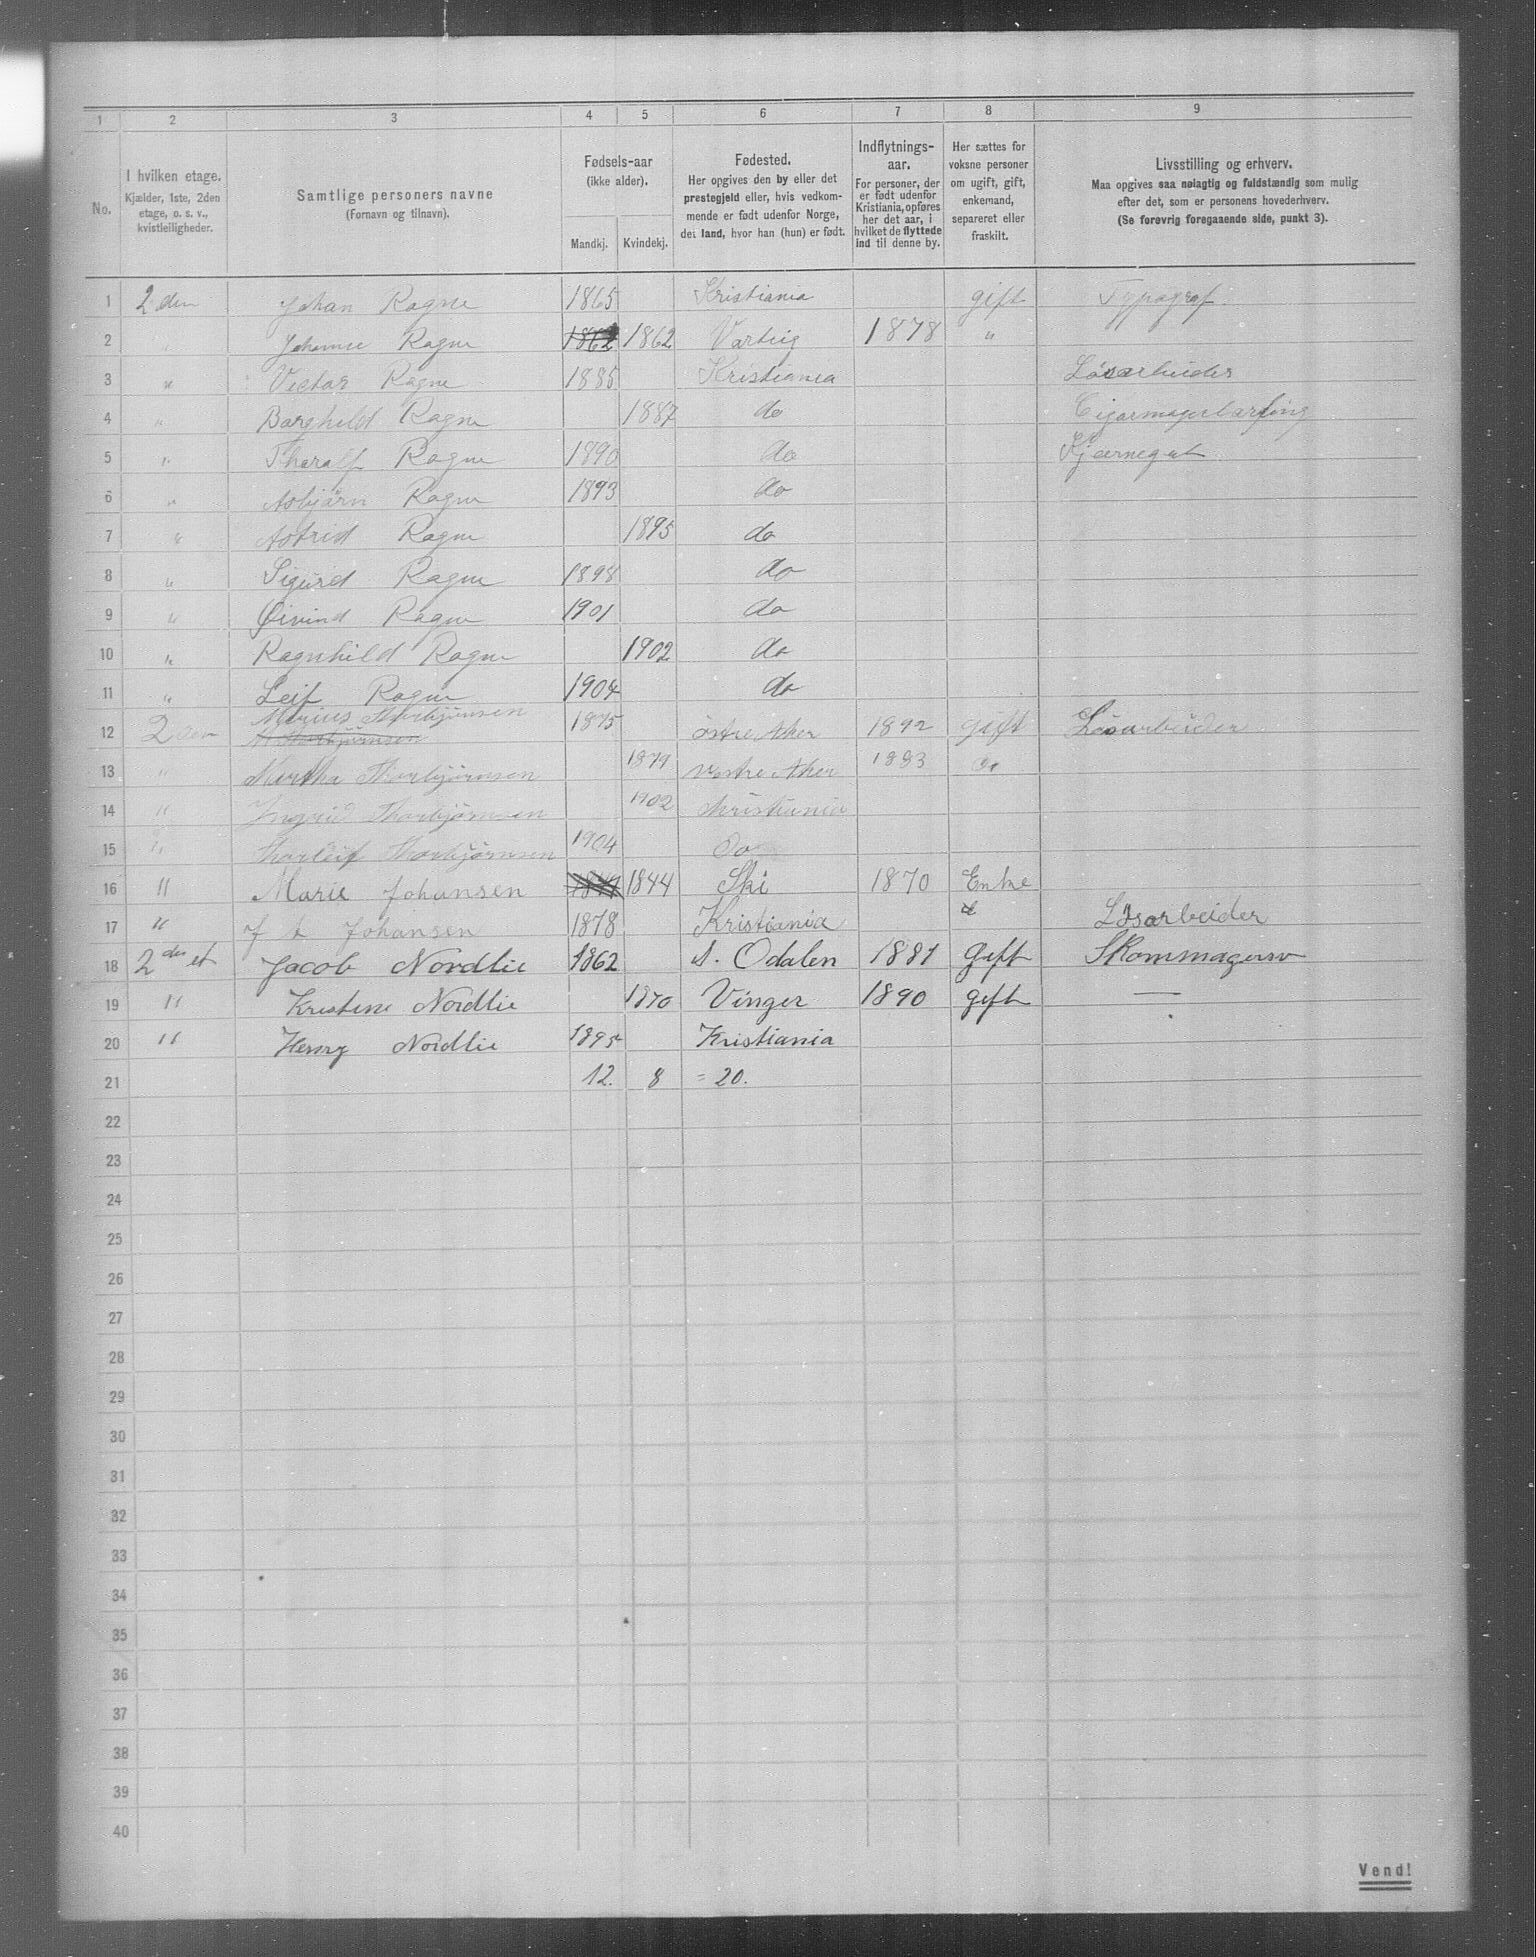 1 2 3 4 5 6 7 8 9
No.
I hvilken etage.
Kjælder, 1ste, 2den
etage, o. s. v.,
kvistleiligheder.
Samtlige personers navne
(Fornavn og tilnavn).
Fødsels-aar
(ikke alder).
Mandkj. Kvindekj.
Fødested.
Her opgives den by eller det
prestegjeld eller, hvis vedkom-
mende er født udenfor Norge,
det land, hvor han (hun) er født.
Indflytnings-
aar.
For personer, der
er født udenfor
Kristiania, opføres
her det aar, i
hvilket de flyttede
ind til denne by.
Her sættes for
voksne personer
om ugift, gift,
enkemand,
separeret eller
fraskilt.
Livsstilling og erhverv.
Maa opgives saa nøiagtig og fuldstændig som mulig
efter det, som er personens hovederhverv.
(Se forøvrig foregaaende side, punkt 3).
1 2den Johan Ragne 1865 Kristiania gift Typograf
2 " Johanne Ragne 1862 1862 Varteig 1878 "
3 " Victor Ragne 1885 Kristiania Løsarbeider
4 " Borghild Ragne 1887 do
5 " Tharalf Ragne 1890 do
6 " Asbjørn Ragne 1893 do
7 " Astrid Ragne 1895 do
8 " Sigurd Ragne 1898 do
9 " Øivind Ragne 1901 do
10 " Ragnhild Ragne 1902 do
11 " Leif Ragne 1904 do
12 2den Marius Thorbjørnsen 1875 østre Aker 1892 gift Løsarbeider
13 " Martha Thorbjørnsen vestre Aker 1883
14 " Ingrid Thorbjørnsen 1902 Kristiania
15 " Thorleif Thorbjørnsen 1904 Do
16 " Marie Johansen 1844 Ski 1870 Enke
17 " Johansen 1878 Kristiania Løsarbeider
18 2den et Jacob Nordlie 1862 S. Odalen 1881 Gift
19 " Kristine Nordlie 1870 Vinger 1890 gift —
20 " Henry Nordlie 1895 Kristiania
21 12. 8 = 20.
22
23
24
25
26
27
28
29
30
31
32
33
34
35
36
37
38
39
40
Vend!